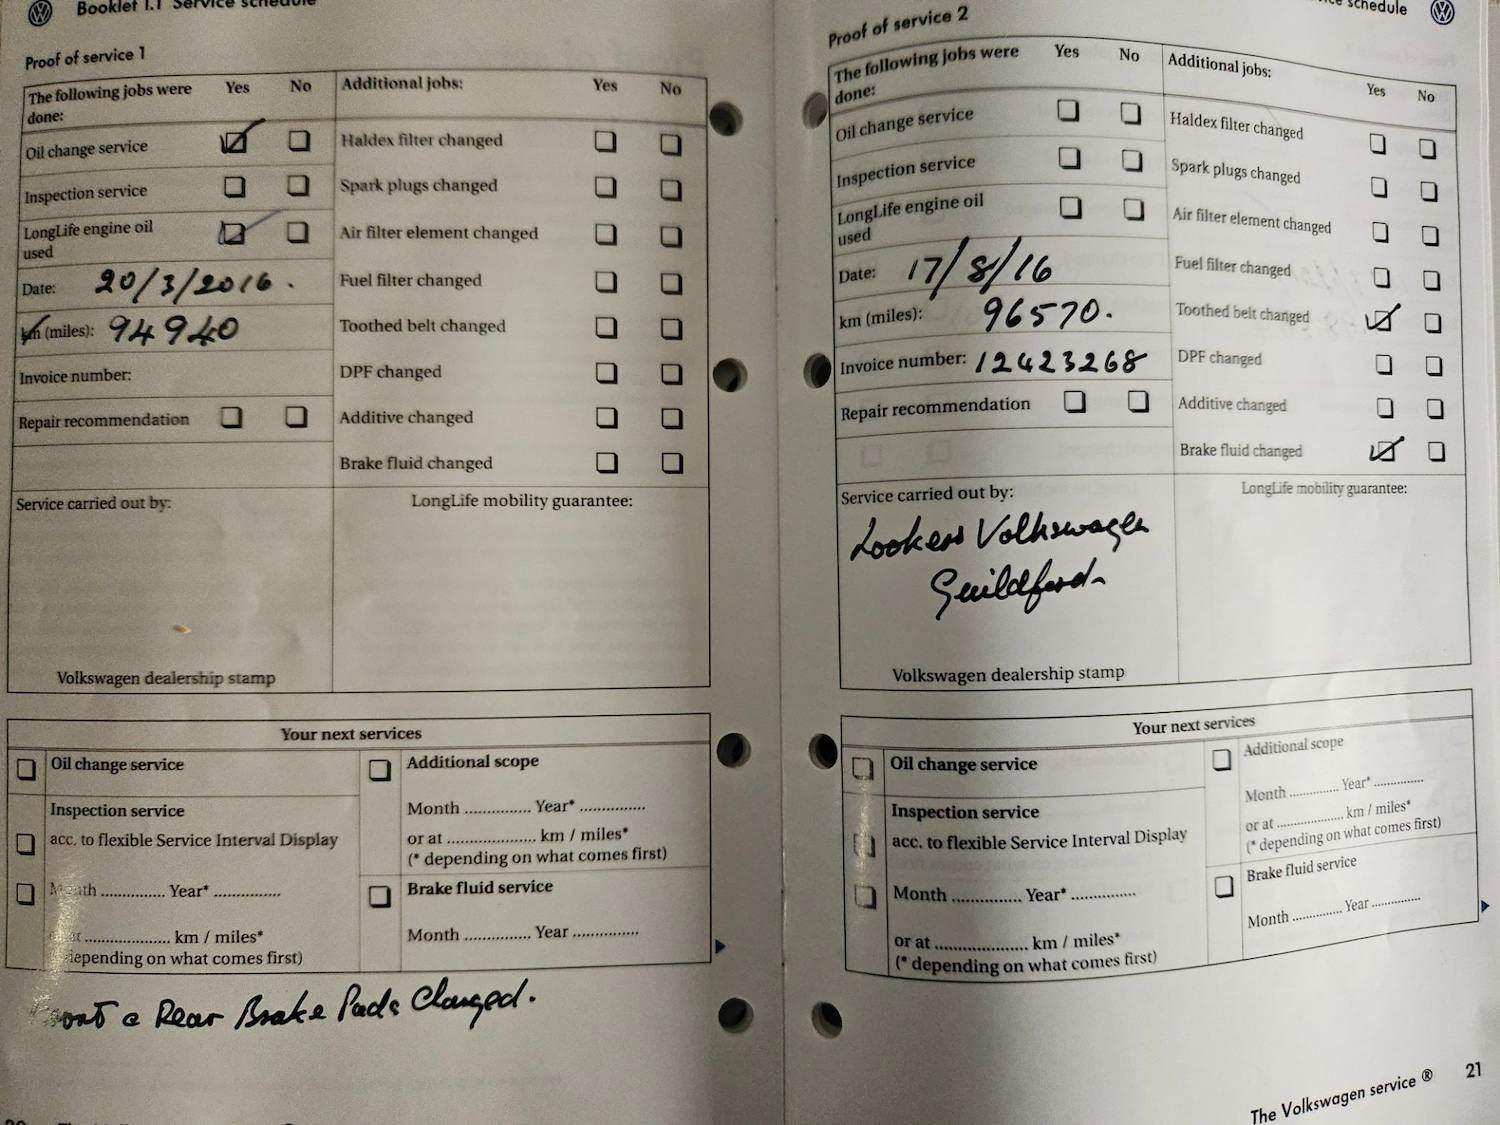 Booklet 1.1 Service schedule
Proof of service 1
The following jobs were done: Yes No Additional jobs: Yes No
Oil change service ☑ ☐ Haldex filter changed ☐ ☐
Inspection service ☐ ☐ Spark plugs changed ☐ ☐
LongLife engine oil used ☑ ☐ Air filter element changed ☐ ☐
Date: 20/3/2016. Fuel filter changed ☐ ☐
km (miles): 94940 Toothed belt changed ☐ ☐
Invoice number: DPF changed ☐ ☐
Repair recommendation ☐ ☐ Additive changed ☐ ☐
Brake fluid changed ☐ ☐
Service carried out by: LongLife mobility guarantee:
Volkswagen dealership stamp
Your next services
☐ Oil change service ☐ Additional scope
Inspection service Month ............. Year* ..............
☐ acc. to flexible Service Interval Display or at .................. km / miles*
(* depending on what comes first)
☐ Month ............. Year* .............. ☐ Brake fluid service
................. km / miles* Month ............. Year ..............
depending on what comes first)
Front & Rear Brake Pads Changed.
schedule
Proof of service 2
The following jobs were done: Yes No Additional jobs: Yes No
Oil change service ☐ ☐ Haldex filter changed ☐ ☐
Inspection service ☐ ☐ Spark plugs changed ☐ ☐
LongLife engine oil used ☐ ☐ Air filter element changed ☐ ☐
Date: 17/8/16 Fuel filter changed ☐ ☐
km (miles): 96570. Toothed belt changed ☑ ☐
Invoice number: 12423268 DPF changed ☐ ☐
Repair recommendation ☐ ☐ Additive changed ☐ ☐
Brake fluid changed ☑ ☐
Service carried out by: LongLife mobility guarantee:
Lookers Volkswagen
Guildford
Volkswagen dealership stamp
Your next services
☐ Oil change service ☐ Additional scope
Inspection service Month ............. Year* .............
☐ acc. to flexible Service Interval Display or at .................. km / miles*
(* depending on what comes first)
☐ Month .............. Year* ............. ☐ Brake fluid service
or at .................... km / miles* Month ............. Year .............
(* depending on what comes first)
The Volkswagen service ® 21